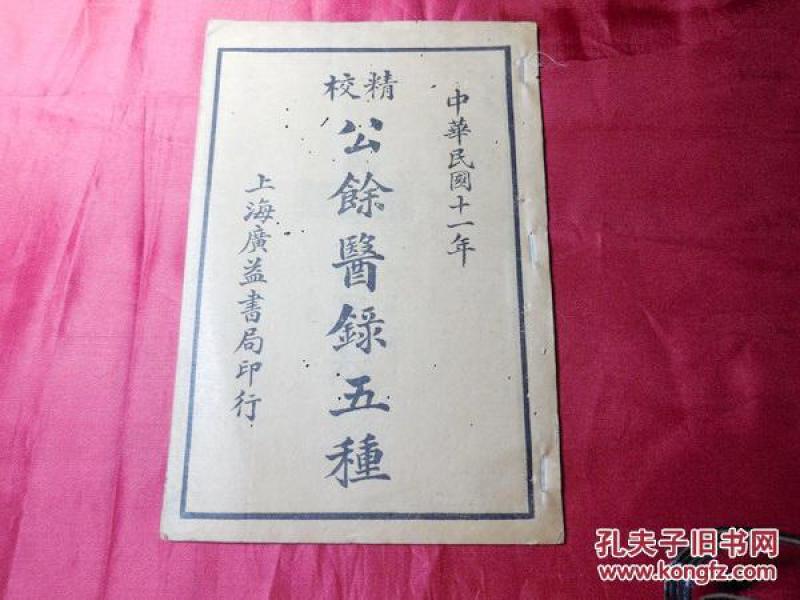 中華民國十一年
精校
公餘醫録五種
上海廣益書局印行
孔夫子旧书网
www.kongfz.com